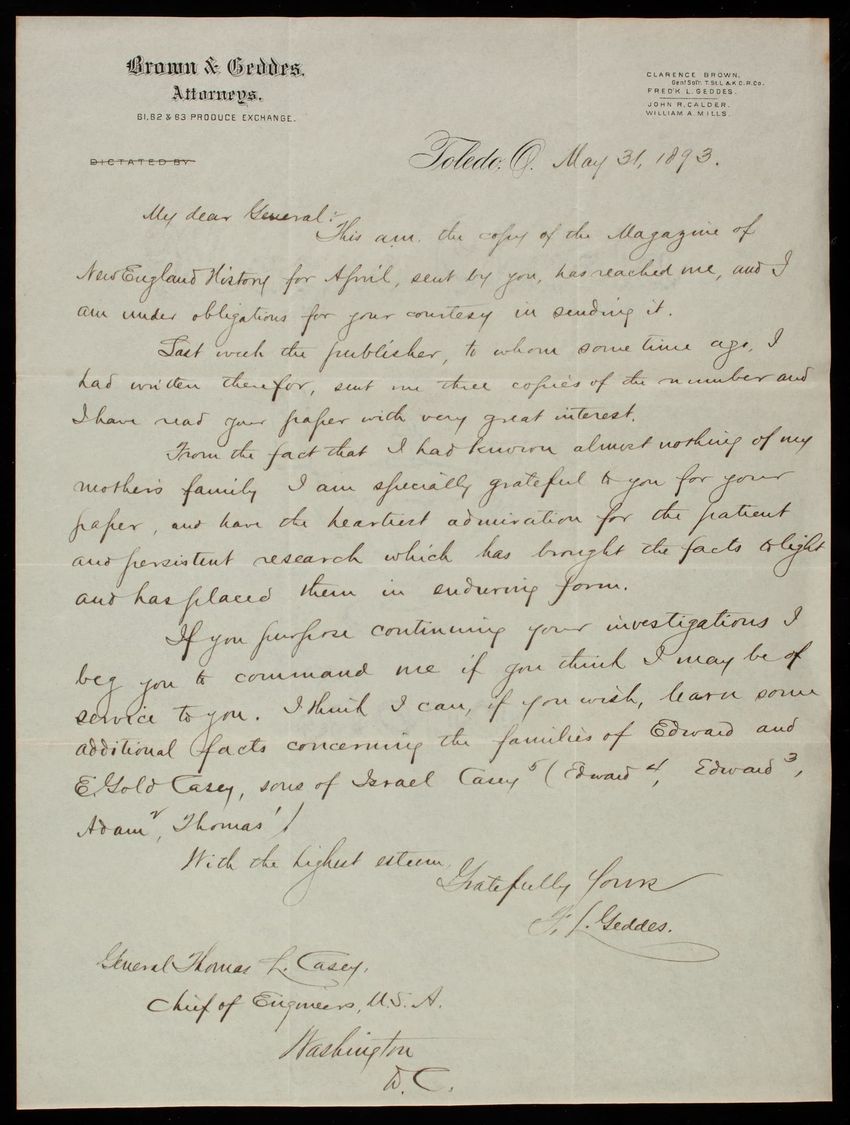 Brown & Geddes.
Attorneys.
61, 62 & 63 PRODUCE EXCHANGE.
CLARENCE BROWN.
Gen'l Sol'r. T. St. L. & K. C. R. Co.
FRED'K L. GEDDES.
JOHN R. CALDER.
WILLIAM A. MILLS.
DICTATED BY
Toledo, O. May 31, 1893.
My dear General:
This a.m. the copy of the Magazine of
New England History for April, sent by you, has reached me, and I
am under obligations for your courtesy in sending it.
Last week the publisher, to whom some time ago, I
had written therefor, sent me three copies of the number and
I have read your paper with very great interest.
From the fact that I had known almost nothing of my
mother's family I am specially grateful to you for your
paper, and have the heartiest admiration for the patient
and persistent research which has brought the facts to light
and has placed them in enduring form.
If you purpose continuing your investigations I
beg you to command me if you think I may be of
service to you. I think I can, if you wish, learn some
additional facts concerning the families of Edward and
E. Gold Casey, sons of Israel Casey 5 (Edward 4, Edward 3,
Adam 2, Thomas 1)
With the highest esteem
Gratefully Yours
F. L. Geddes.
General Thomas L. Casey,
Chief of Engineers, U.S.A.
Washington
D.C.